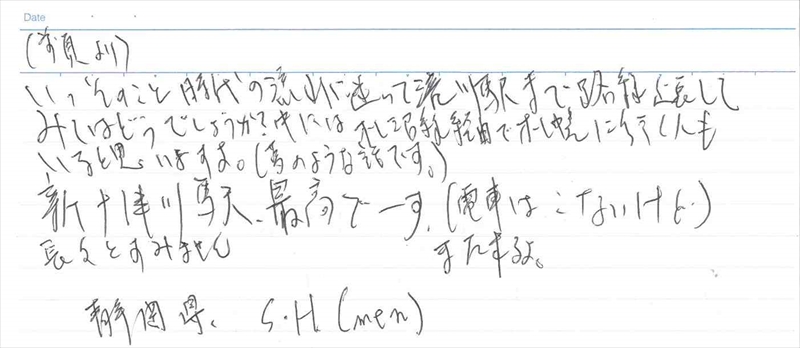 Date
(前頁より)
いっそのこと時代の流れに逆って滝川駅まで路線延長して
みてはどうでしょうか?中には札沼線経由で札幌に行く人も
いると思いますよ。(夢のような話です。)
新十津川駅、最高でーす。(電車はこないけど)
長々とすみません
また来るよ。
静岡県、S・H(men)